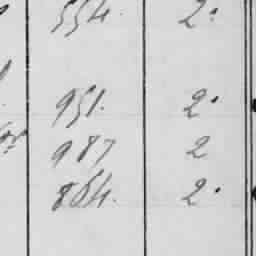 554. 2.
951. 2.
987 2
864. 2.